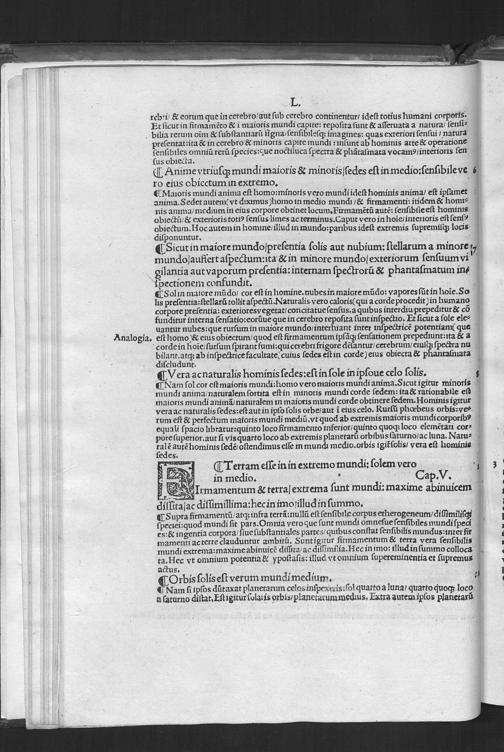 L.
rebri: & eorum que in cerebro/aut sub cerebro continentur: idest totius humani corporis.
Et sicut in firmamēto & i maioris mundi capite: reposita sunt & asseruata a natura/sensi-
bilia rerum oīm & substantiarū signa/sensibilesq; imagines: quas exteriori sensui/natura
presentat: ita & in cerebro & minoris capite mundi: insunt ab hominis arte & operatione
sensibiles omniū rerū species: que noctiluca spectra & phātasmata vocam9: interioris sen
sus obiecta.
¶ Anime vtriusq; mundi maioris & minoris/sedes est in medio: sensibile ve 6
ro eius obiectum in extremo.
¶ Maioris mundi anima est homo: minoris vero mundi idest hominis anima/est ipsamet
anima. Sedet autem/vt diximus: homo in medio mundi/& firmamenti: itidem & homi-
nis anima/medium in eius corpore obtinet locum. Firmamētū autē: sensibile est hominis
obiectū: & exterioris toti9 sensus limes ac terminus. Caput vero in hoie/interioris est sens9
obiectum. Hoc autem in homine: illud in mundo: paribus idest extremis supremisq; locis
disponuntur.
¶ Sicut in maiore mundo/presentia solis aut nubium: stellarum a minore 7
mundo/auffert aspectum: ita & in minore mundo/exteriorum sensuum vi
gilantia aut vaporum presentia: internam spectrorū & phantasmatum in-
spectionem confundit.
¶ Sol in maiore mūdo: cor est in homine. nubes in maiore mūdo: vapores sūt in hoie. So
lis presentia: stellarū tollit aspectū. Naturalis vero caloris (qui a corde procedit) in humano
corpore presentia: exteriores vegetat/concitatue sensus. a quibus interdiu prepeditur & cō
funditur interna sensatio: eorsue que in cerebro reposita sunt inspectio. Et sicut a sole ele
uantur nubes: que rursum in maiore mundo: interhiant inter inspectricē potentiam/que
Analogia. est homo & eius obiectum/quod est firmamentum ipsāq; sensationem prepediunt: ita & a
corde in hoie: sursum spirant fumi: qui cerebri frigore dēsantur/cerebrum/eiusq; spectra nu
bilant. atq; ab inspectrice facultate/cuius sedes est in corde) eius obiecta & phantasmata
discludunt.
¶ Vera ac naturalis hominis sedes: est in sole in ipsoue celo solis. 8
¶ Nam sol cor est maioris mundi: homo vero maioris mundi anima. Sicut igitur minoris
mundi anima/naturalem sortita est in minoris mundi corde sedem: ita & rationabile est
maioris mundi animā/naturalem in maioris mundi corde obtinere sedem. Hominis igitur
vera ac naturalis sedes: est aut in ipso solis orbe/aut i eius celo. Rursū phœbeus orbis: ve-
rum est & perfectum maioris mundi mediū. vt quod ab extremis maioris mundi corporib9
equali spacio libratur: quinto loco firmamento inferior: quinto quoq; loco elemētari cor-
pore superior. aut si vis quarto loco ab extremis planetarū orbibus saturno/ac luna. Natu-
ralē autē hominis sedē/ostendimus esse in mundi medio. orbis igit solis/vera est hominis
sedes.
¶ Terram esse in in extremo mundi: solem vero 1
in medio. Cap.V.
FIrmamentum & terra/extrema sunt mundi: maxime abinuicem
dissita/ac dissimillima: hec in imo: illud in summo.
¶ Supra firmamentū/atq; infra terrā: nullū est sensibile corpus etherogeneum/dissimilisq;
speciei: quod mundi sit pars. Omnia vero que sunt mundi omnesue sensibiles mundi speci
es: & ingentia corpora/siue substantiales partes/quibus constat sensibilis mundus: inter fir
mamenti ac terre clauduntur ambitū. Sunt igitur firmamentum & terra vera sensibilis
mundi extrema: maxime abinuicē dissita/ac dissimilia. Hec in imo: illud in summo colloca
ta. Hec vt omnium potentia & ypostasis: illud vt omnium supereminentia et supremus
actus.
¶ Orbis solis est verum mundi medium. 2
¶ Nam si ipsos dūtaxat planetarum celos inspexeris: sol quarto a luna/quarto quoq; loco
a saturno distat. Est igitur solaris orbis/planetarum medius. Extra autem ipsos planetarū